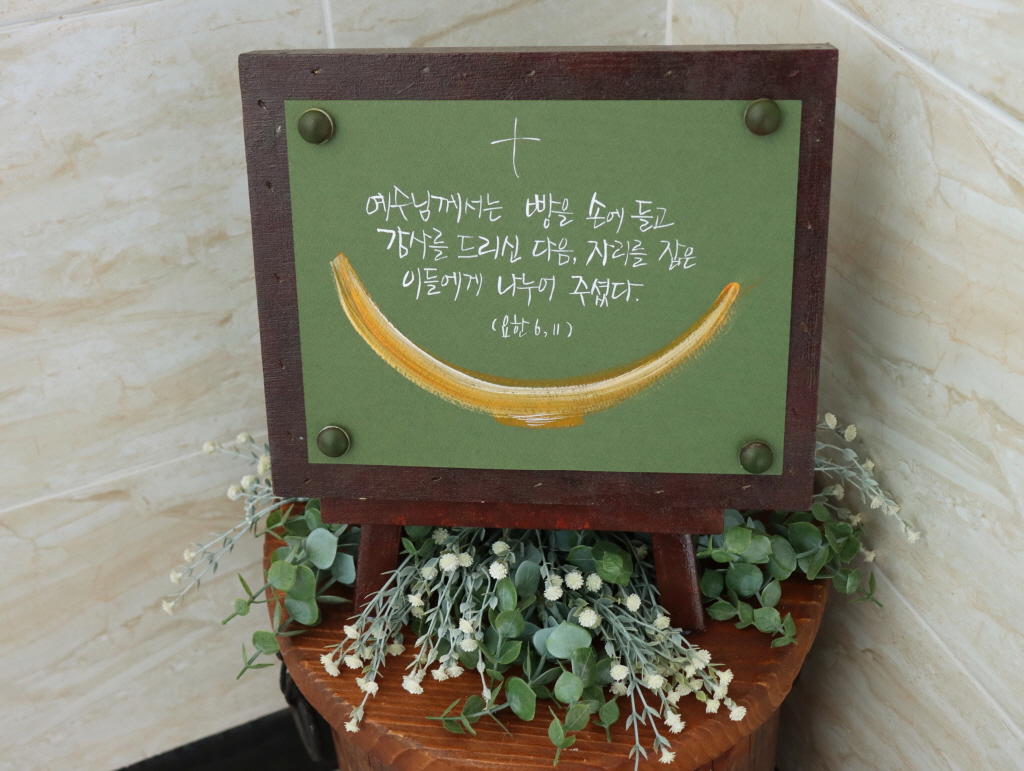 예수님께서는 빵을 손에 들고
감사를 드리신 다음, 자리를 잡은
이들에게 나누어 주셨다.
(요한 6, 11)